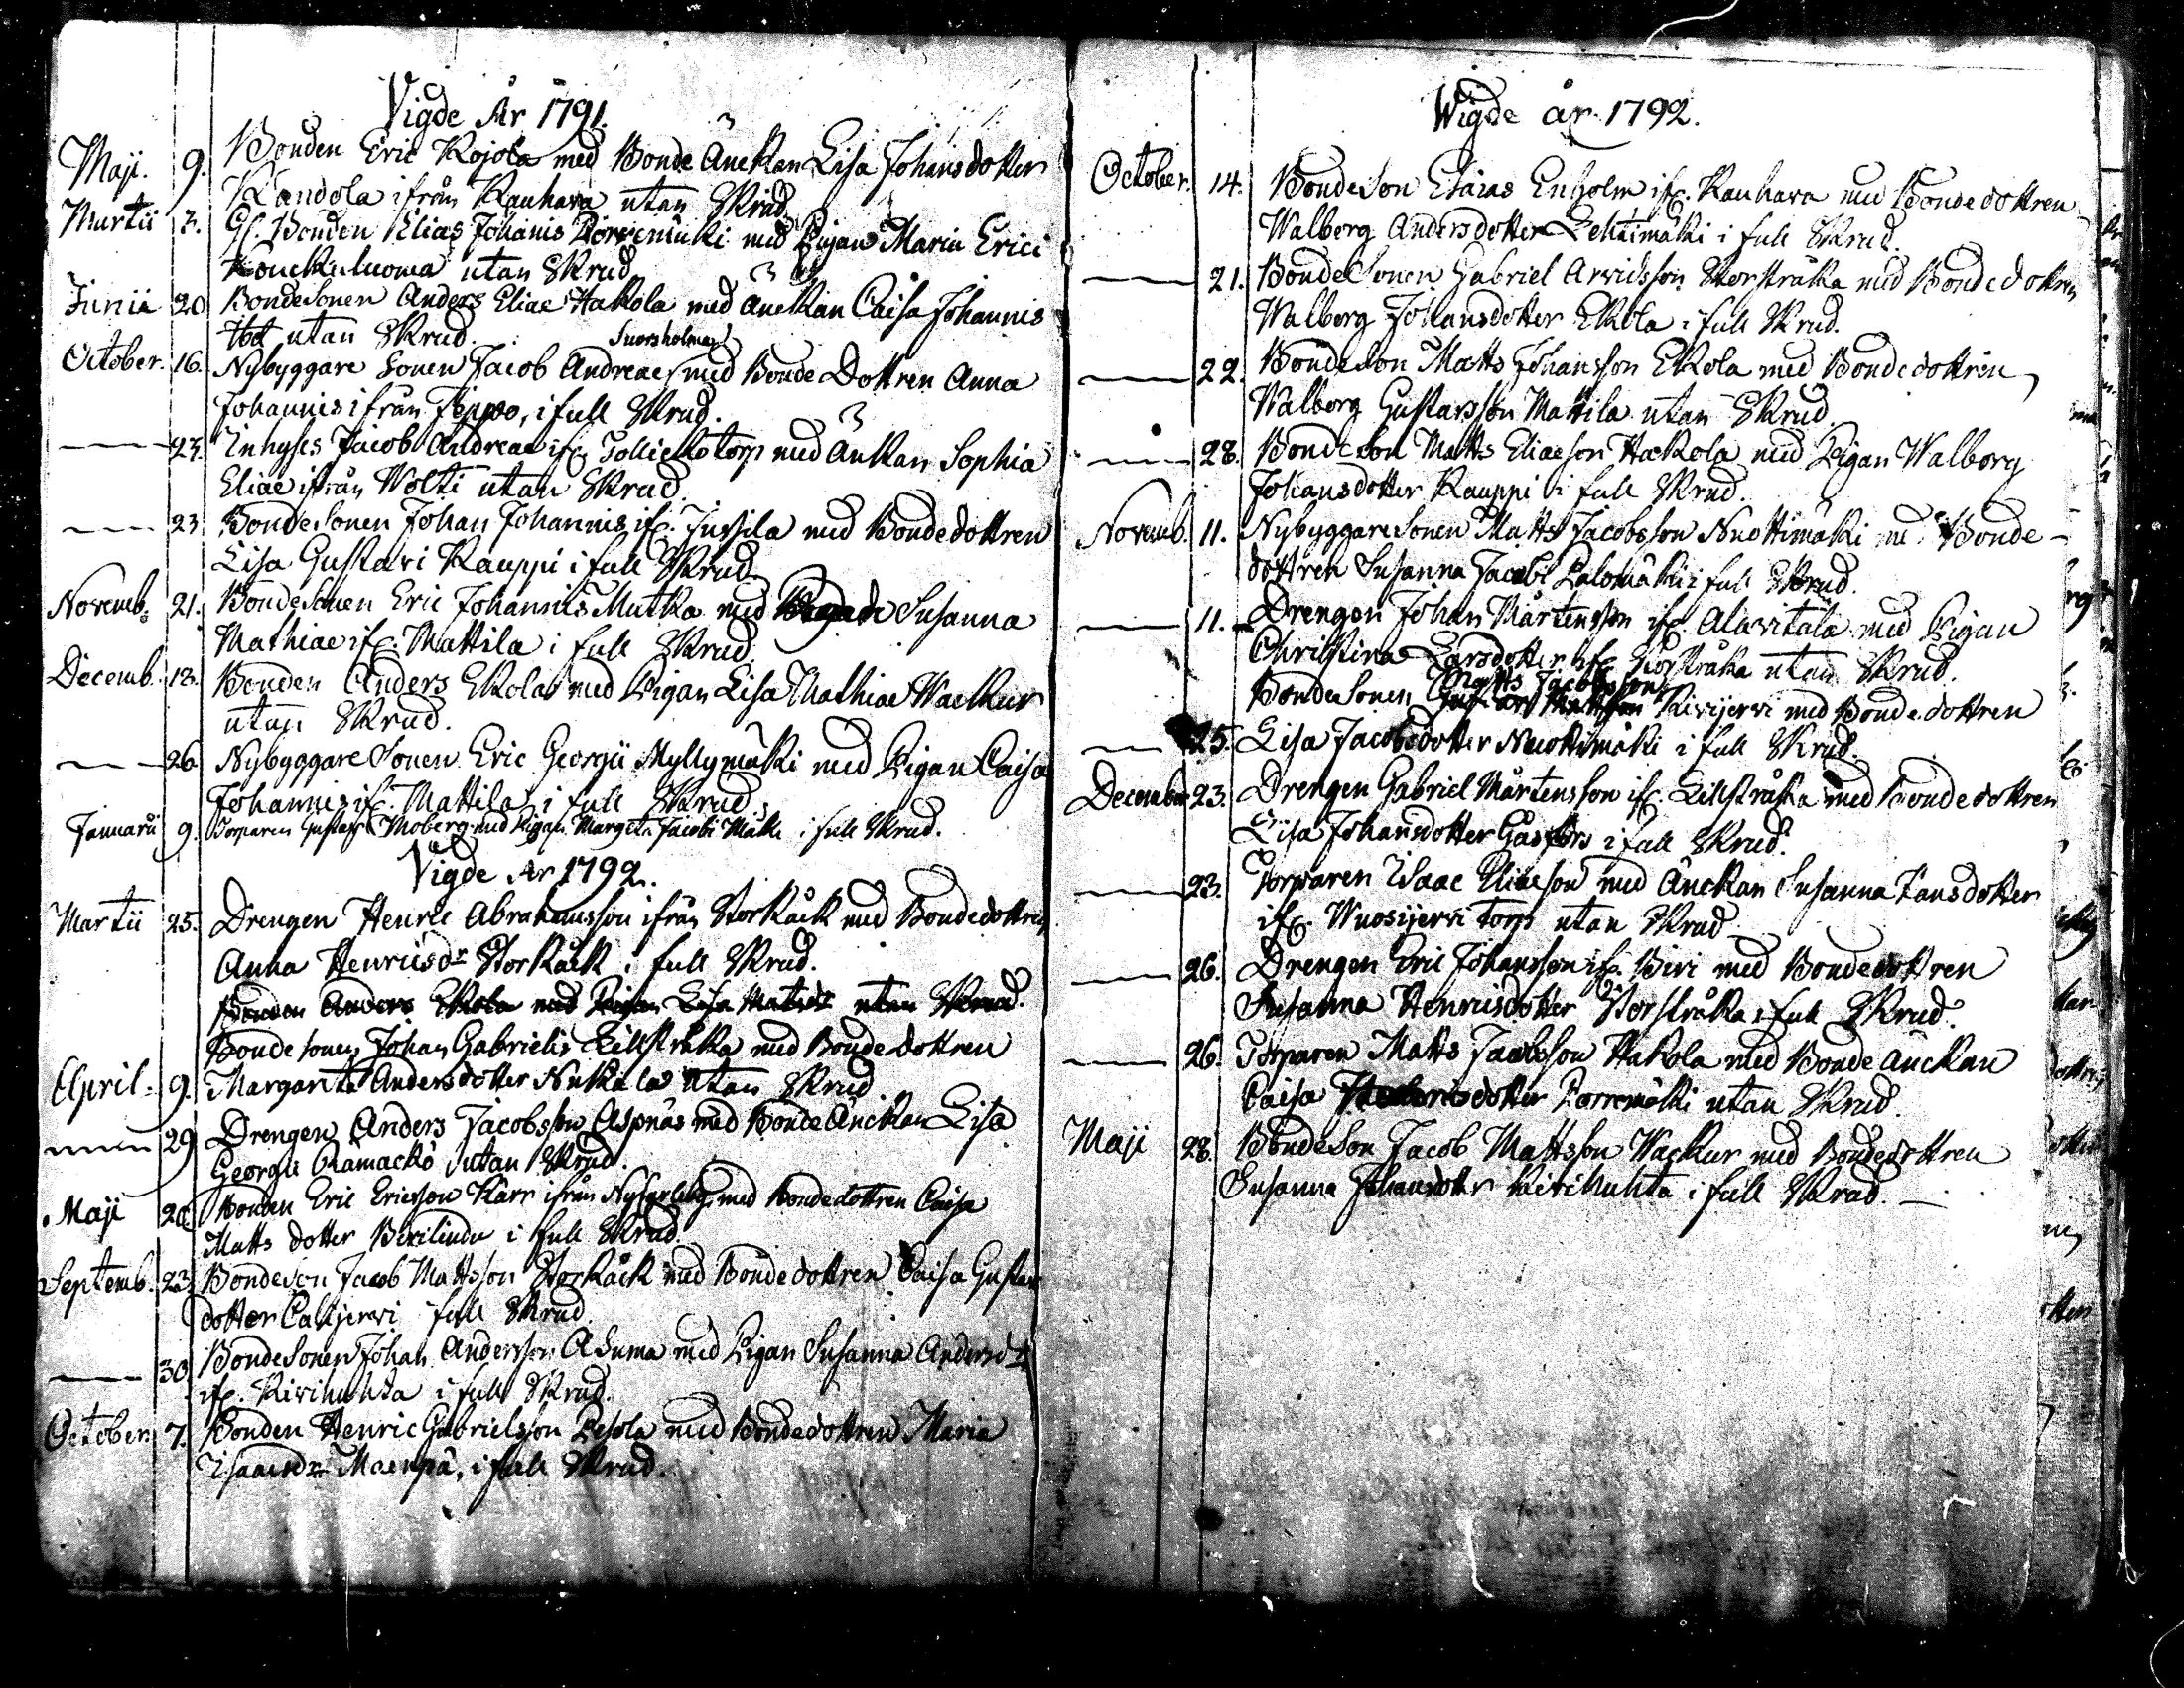 Vigde År 1791.
Maji. 9. Bonden Eric Kojola med Bonde Änckan Lisa Johansdotter
Kandola ifrån Kauhava utan Skrud
Martii 3. Gl. Bonden Elias Johanis med Pigan Maria Erici
utan Skrud
Junii 20 Bondesonen Anders Eliae Hakola med Änckan Caisa Johannis
utan Skrud.
October. 16. Nybyggare Sonen Jacob Andreae Suorsholma med Bonde Dottren Anna
Johannis ifrån Jeppo, i full Skrud.
23. Inhyses Jacob Andreae ifr. torp med Änkan Sophia
Eliae ifrån Wolti utan Skrud.
23 Bondesonen Johan Johannis ifr. Jussila med Bondedottren
Lisa Gustavi Kauppi i full Skrud
Novemb. 21. Bondesonen Eric Johannis Mutka med Susanna
Mathiae ifr. Mattila i full Skrud
Decemb. 13. Bonden Anders Ekola med Pigan Lisa Mathiae Wackur
utan Skrud.
26 Nybyggare Sonen Eric Georgii Myllymäki med Pigan Caisa
Johannis ifr. Mattila i full Skrud
Januarii 9. Torparen Gustaf Moberg med Pigan Margeta Jacobi i full Skrud.
Vigde År 1792.
Martii 25. Drengen Henric Abrahamsson ifrån Storkåck med Bondedottren
Anna Henricsdr Storkåck i full Skrud.
Bonden Anders Ekola med Pigan Lisa Matsdr utan Skrud.
Bondesonen Johan Gabrielis Lillstråka med Bondedottren
April. 9. Margareta Andersdotter utan Skrud
29 Drengen Anders Jacobsson Aspnäs med Bonde Änckan Lisa
Georgii Rämackö utan Skrud.
Maji 20 Bonden Eric Ericsson Kärr ifrån Nykarleby med Bondedottren Caisa
Matts dotter i full Skrud.
Septemb. 23. Bondeson Jacob Mattsson Storkåck med Bondedottren Caisa Gustavs
dotter i full Skrud
30 Bondesonen Johan Andersson med Pigan Susanna Andersdr
ifr. Kivihuhta i full Skrud.
October. 7. Bonden Henric Gabrielsson Pesola med Bondedottren Maria
Isaacsdr Maenpä, i full Skrud.
Wigde år 1792.
October. 14. Bondeson Esaias Enholm ifr. Kauhava med Bondedottren
Walborg Andersdotter Lehtimäki i full Skrud.
21. Bondesonen Gabriel Arvidsson Storstråka med Bondedottren
Walborg Johansdotter Ekola i full Skrud.
22. Bondeson Matts Johansson Ekola med Bondedottren
Walborg Gustavsson Mattila utan Skrud
28. Bondeson Matts Eliaeson Hakola med Pigan Walborg
Johansdotter Kauppi i full Skrud.
Novemb. 11. Nybyggare Sonen Matts Jacobsson Nuottimäki med Bonde-
dottren Susanna Jacobi Palomäki i full Skrud.
11. Drengen Johan Mårtensson ifr. Alavitala med Pigan
Christina Larsdotter ifr. Storstråka utan Skrud.
Bondesonen Matts Jacobsson Kivijervi med Bondedottren
25. Lisa Jacobsdotter Nuottimäki i full Skrud.
December 23. Drengen Gabriel Mårtensson ifr. Lillstråka med Bondedottren
Lisa Johansdotter Gåsfors i full Skrud.
23. Torparen Isaac Eliaeson med Änckan Susanna Hansdotter
ifr. Wuosijervi torp utan Skrud
26. Drengen Eric Johansson ifr. med Bondedottren
Susanna Henricsdotter Storstråka i full Skrud.
26. Torparen Matts Jacobsson Hakola med Bonde Änckan
Caisa utan Skrud.
Maji 28. Bondeson Jacob Mattsson Wackur med Bondedottren
Susanna Johansdotter Kivihuhta i full Skrud.